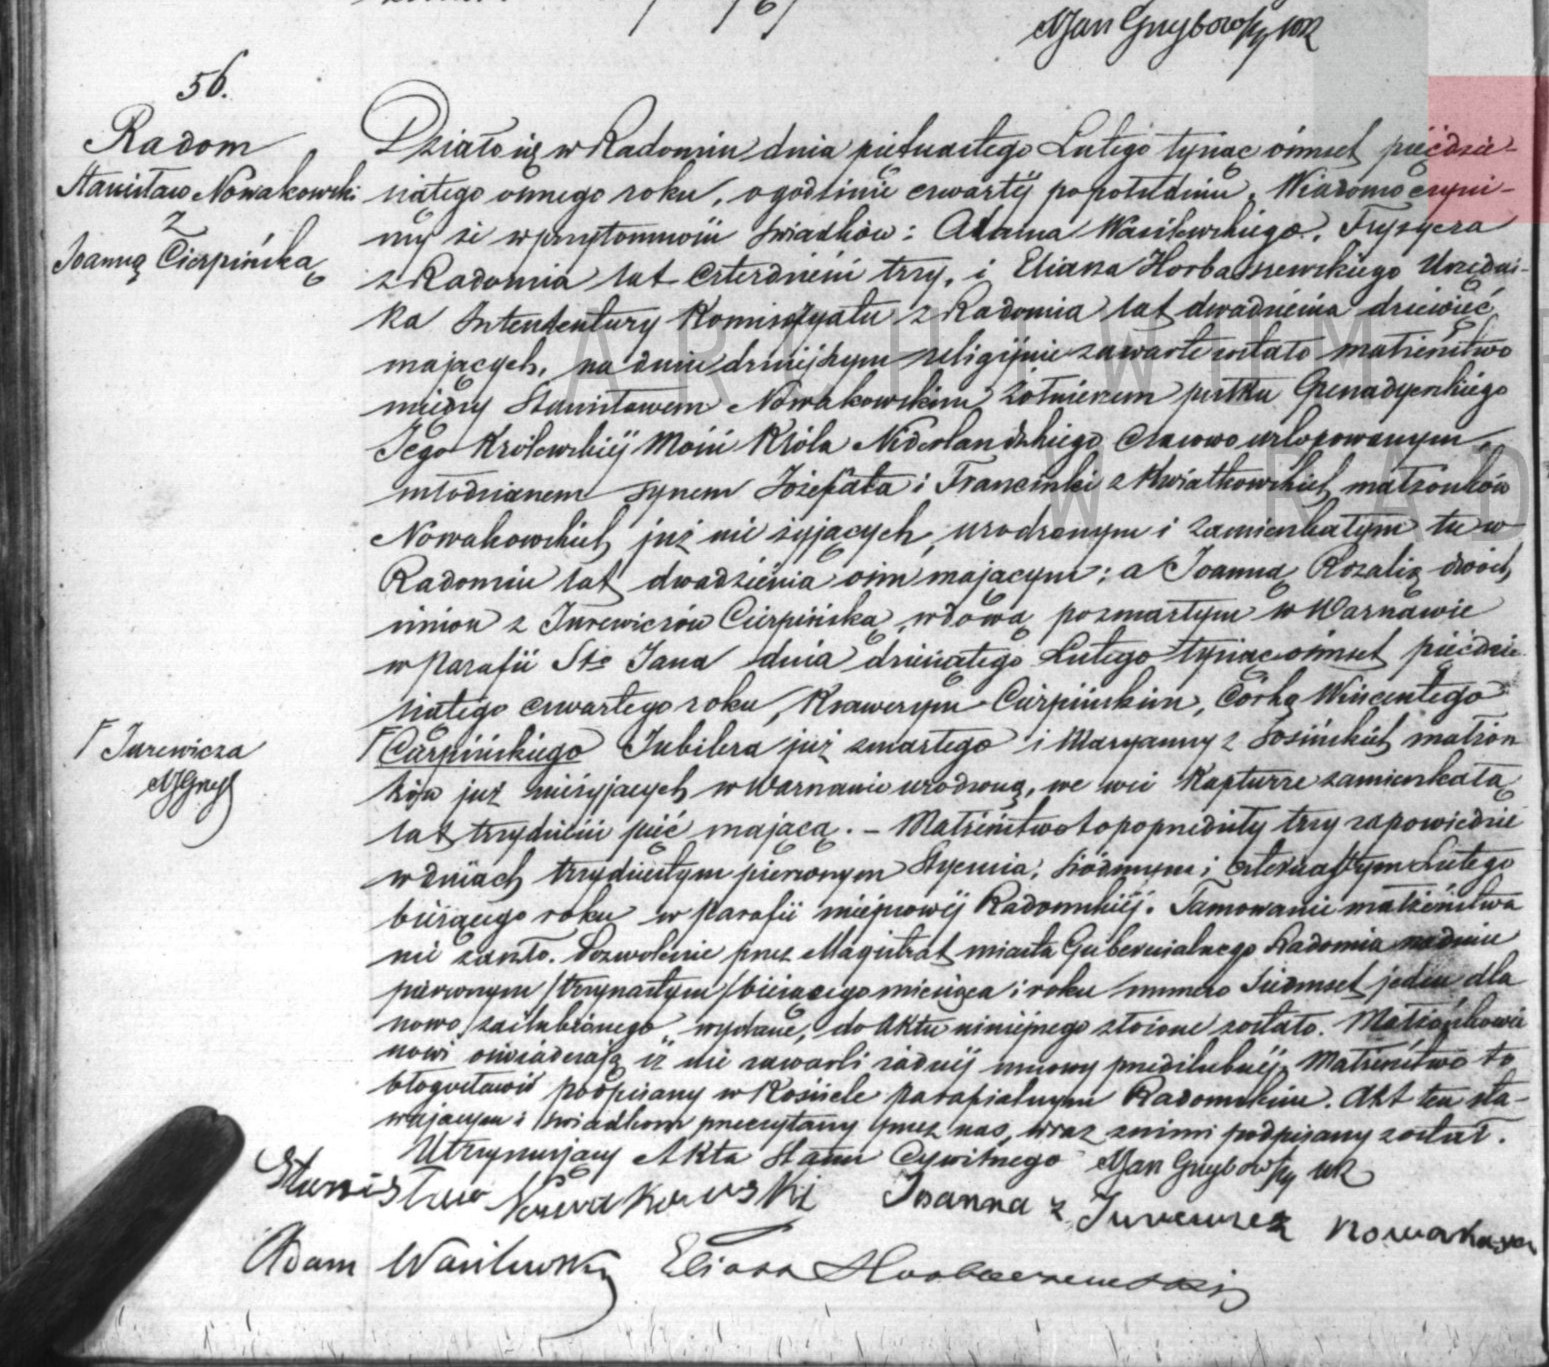 MJan Grzybowski wik
56.
Radom
Stanisław Nowakowski
z
Joanną Cierpińską
Działo się w Radomiu dnia piętnastego Lutego tysiąc ośmset pięćdzie-
siątego ósmego roku, o godzinie czwartéj popołudniu. Wiadomo czyni-
my że w przytomności świadków: Adama Wasilewskiego, Fryzyera
z Radomia lat czterdzieści trzy, i Eliasza Horbaszewskiego Urzędni-
ka Intendentury Komisaryatu z Radomia lat dwadzieścia dziewięć
mających, na dniu dzisiejszym religijnie zawarte zostało małżeństwo
między Stanisławem Nowakowskim Żołnierzem pułku Grenadyerskiego
Jego Królewskiéj Mości Króla Niderlandzkiego czasowo urlopowanym
młodzianem synem Józefata i Franciszki z Kwiatkowskich małżonków
Nowakowskich już nie żyjących, urodzonym i zamieszkałym tu w
Radomiu lat dwadzieścia ośm mającym; a Joanną Rozalią dwóch
imion z Jurewiczów Cierpińską, wdową po zmarłym w Warszawie
w Parafii Sto Jana dnia dziesiątego Lutego tysiąc ośmset pięćdzie-
siątego czwartego roku, Ksawerym Cierpińskim, Córką Wincentego
Γ Carpińskiego Jubilera już zmarłego i Maryanny z Sosińskich małżon
ków już nieżyjących w Warszawie urodzoną, we wsi Kapturze zamieszkałą
Γ Jurewicza
MJGrzyb
lat trzydzieści pięć mającą. – Małżeństwo to poprzedziły trzy zapowiedzie
w dniach trzydziestym pierwszym Stycznia, siódmym i czternastym Lutego
bieżącego roku w Parafii miejscowéj Radomskiéj. Tamowanie małżeństwa
nie zaszło. Dozwolenie przez Magistrat miasta Gubernialnego Radomia na dniu
pierwszym /trzynastym/ bieżącego miesiąca i roku numero siedmset jeden dla
nowo zaślubionego wydane, do Aktu niniejszego złożone zostało. Małżonkowie
nowi oświadczają iż nie zawarli żadnéj umowy przedślubnéj. Małżeństwo to
błogosławił podpisany w Kościele Parafialnym Radomskim. Akt ten sta-
wającym i świadkom przeczytany przez nas, wraz z nimi podpisany został.
Utrzymujący Akta Stanu Cywilnego MJan Grzybowski wik
Stanisław Nowakowski Joanna z Jurewicz Nowakowska
Adam Wasilewski Eliasz Horbaszewski
ARCHIWUM
W RAD